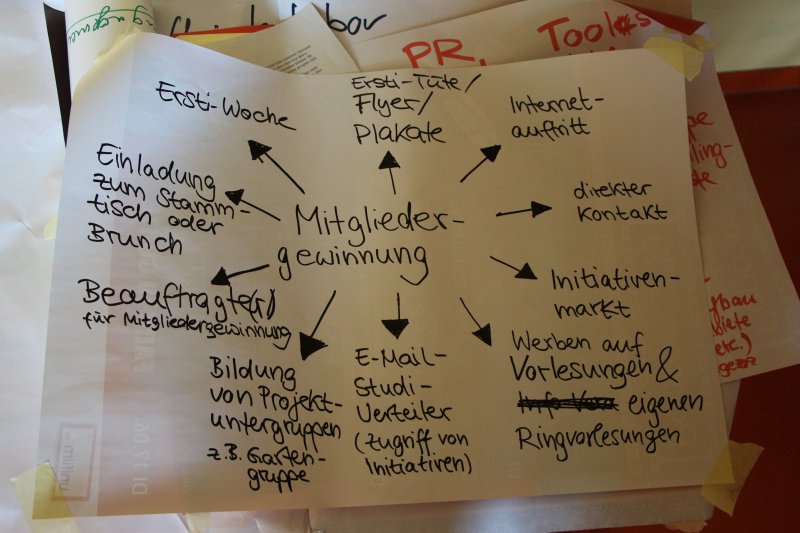 PR,
Tools
Ersti-Woche
Ersti-Tüte/
Flyer/
Plakate
Internet-
auftritt
Einladung
zum Stamm-
tisch oder
Brunch
direkter
Kontakt
Mitglieder-
gewinnung
Beauftragte(r)
für Mitgliedergewinnung
Initiativen-
markt
Bildung
von Projekt-
untergruppen
z.B. Garten-
gruppe
E-Mail-
Studi-
Verteiler
(Zugriff von
Initiativen)
Werben auf
Vorlesungen &
eigenen
Ringvorlesungen
etc.)